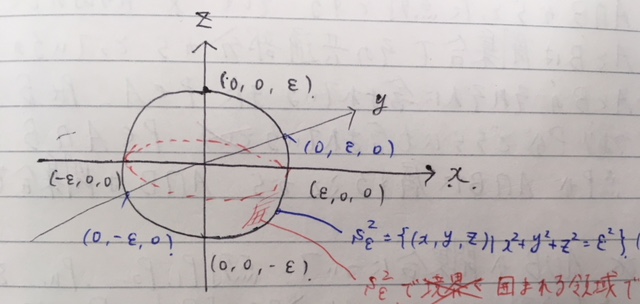 z
(0, 0, ε)
y
(0, ε, 0)
x
(-ε, 0, 0)
(ε, 0, 0)
(0, -ε, 0)
S²_ε = {(x, y, z) | x² + y² + z² = ε²} (
(0, 0, -ε)
S²_ε で 囲まれる領域で